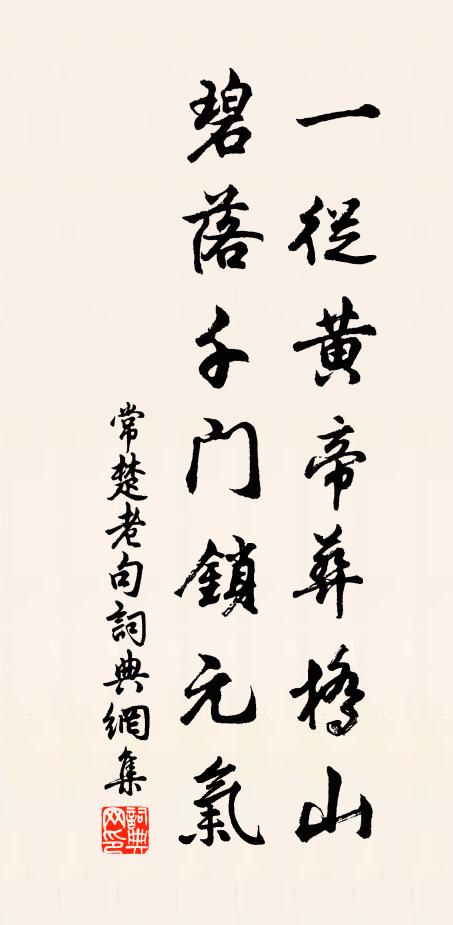 一從黃帝葬橋山
碧落千門鎖元氣
常楚老句詞典網集
詞典
网印